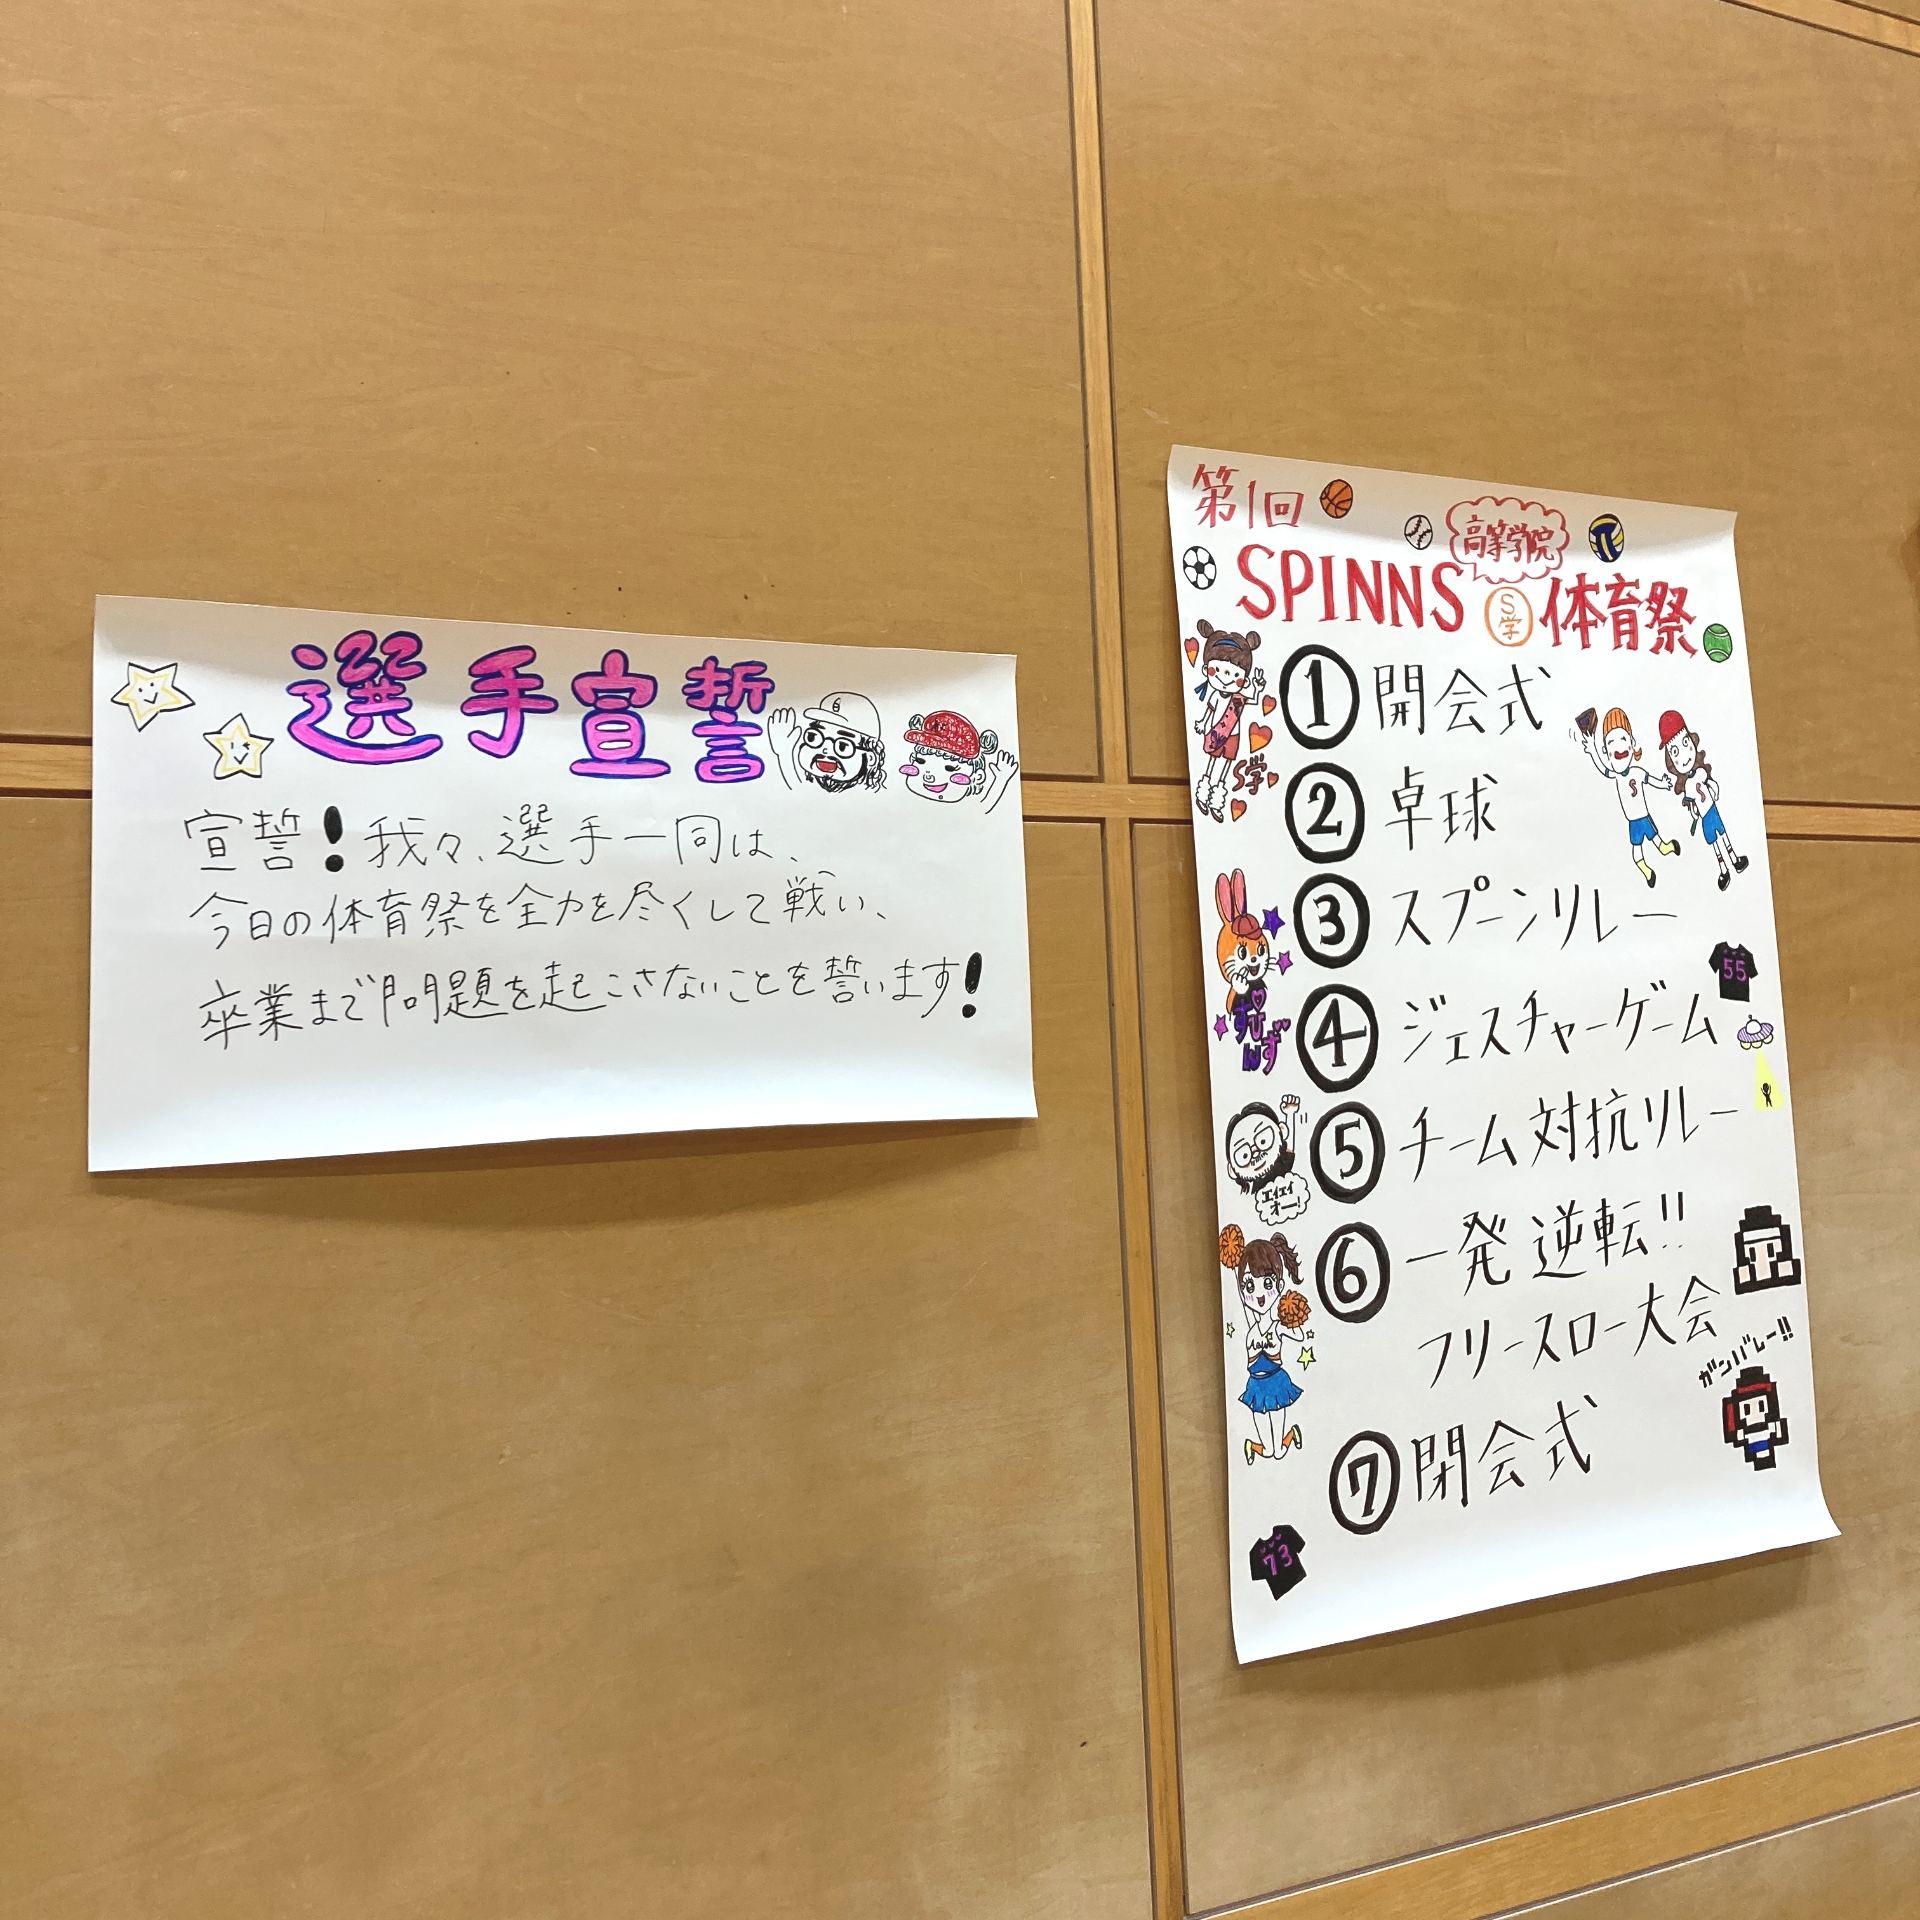 選手宣誓
宣誓!我々、選手一同は、
今日の体育祭を全力を尽くして戦い、
卒業まで問題を起こさないことを誓います!
第1回
高等学院
SPINNS S学 体育祭
① 開会式
② 卓球
③ スプーンリレー
④ ジェスチャーゲーム
⑤ チーム対抗リレー
⑥ 一発逆転!!
フリースロー大会
⑦ 閉会式
S学
すぴんず
エイエイ
オー!
55
ガンバレー!!
73